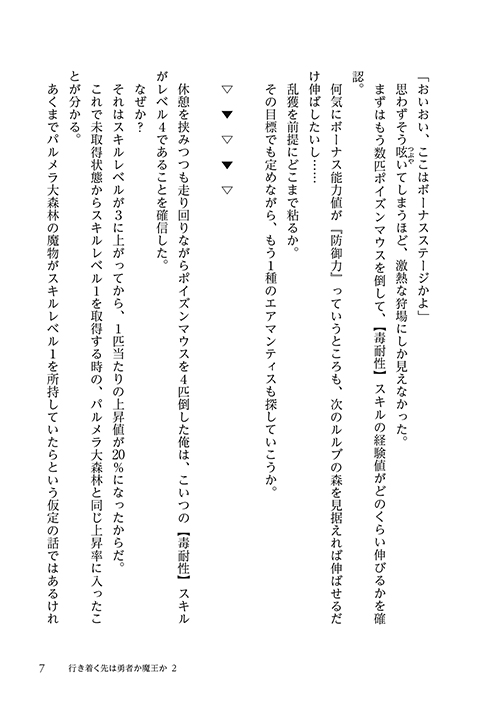 「おいおい、ここはボーナスステージかよ」
思わずそう呟いてしまうほど、激熱な狩場にしか見えなかった。
つぶや
まずはもう数匹ポイズンマウスを倒して、【毒耐性】スキルの経験値がどのくらい伸びるかを確
認。
何気にボーナス能力値が『防御力』っていうところも、次のルルブの森を見据えれば伸ばせるだ
け伸ばしたいし……
乱獲を前提にどこまで粘るか。
その目標でも定めながら、もう１種のエアマンティスも探していこうか。
▽ ▼ ▽ ▼ ▽
休憩を挟みつつも走り回りながらポイズンマウスを４匹倒した俺は、こいつの【毒耐性】スキル
がレベル４であることを確信した。
なぜか？
それはスキルレベルが３に上がってから、１匹当たりの上昇値が20％になったからだ。
これで未取得状態からスキルレベル１を取得する時の、パルメラ大森林と同じ上昇率に入ったこ
とが分かる。
あくまでパルメラ大森林の魔物がスキルレベル１を所持していたらという仮定の話ではあるけれ
7 行き着く先は勇者か魔王か 2